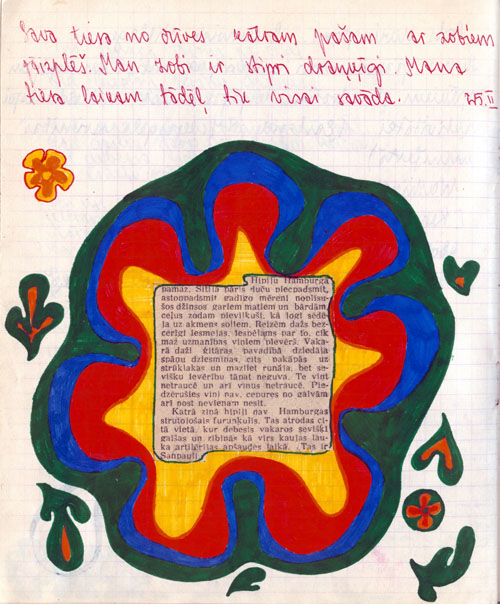 Sava tiesa no dzīves katram pašam ar zobiem
jāizplēš. Man zobi ir stipri draņķīgi. Mana
tiesa laikam tādēļ tik visai savāda. 25.II
Hipiju Hamburgā
pamaz. Sitila pāris duču piecpadsmit,
astoņpadsmit gadīgo mēreni noplīsu-
šos džinsos gariem matiem un bārdām,
ceļus zodam pievilkuši, kā jogi sēdē-
ja uz akmens soliem. Reizēm dažs bez-
cerīgi iesmejas,
maz uzmanības viņiem pievērš. Vaka-
rā daži ģitāras pavadībā dziedāja
spāņu dziesmiņas, cits pakāpās uz
strūklakas un mazliet runāja, bet se-
višķu ievērību tāpat neguva. Te viņi
netraucē un arī viņus netraucē. Pie-
dzērušies viņi nav, cepures no galvām
arī nost nevienam nesit.
Katrā ziņā hipiji nav Hamburgas
strutojošais furunkulis. Tas atrodas ci-
tā vietā, kur debesis vakaros sevišķi
gaišas un zibinās kā virs kaujas lau-
ka artilērijas apšaudes laikā. Tas ir
Sanpauli.